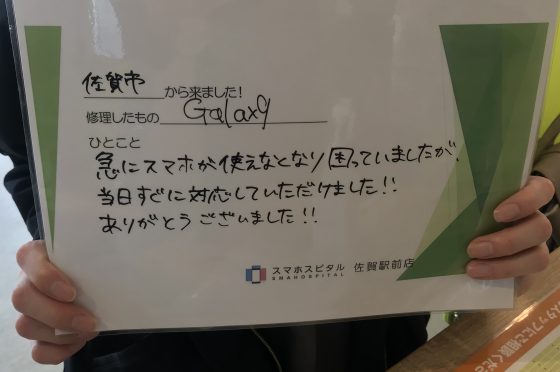 佐賀市から来ました!
修理したもの Galaxy
ひとこと
急にスマホが使えなとなり困っていましたが、
当日すぐに対応していただけました!!
ありがとうございました!!
スマホスピタル 佐賀駅前店
SMAHOSPITAL
スタッフにご相談くださ